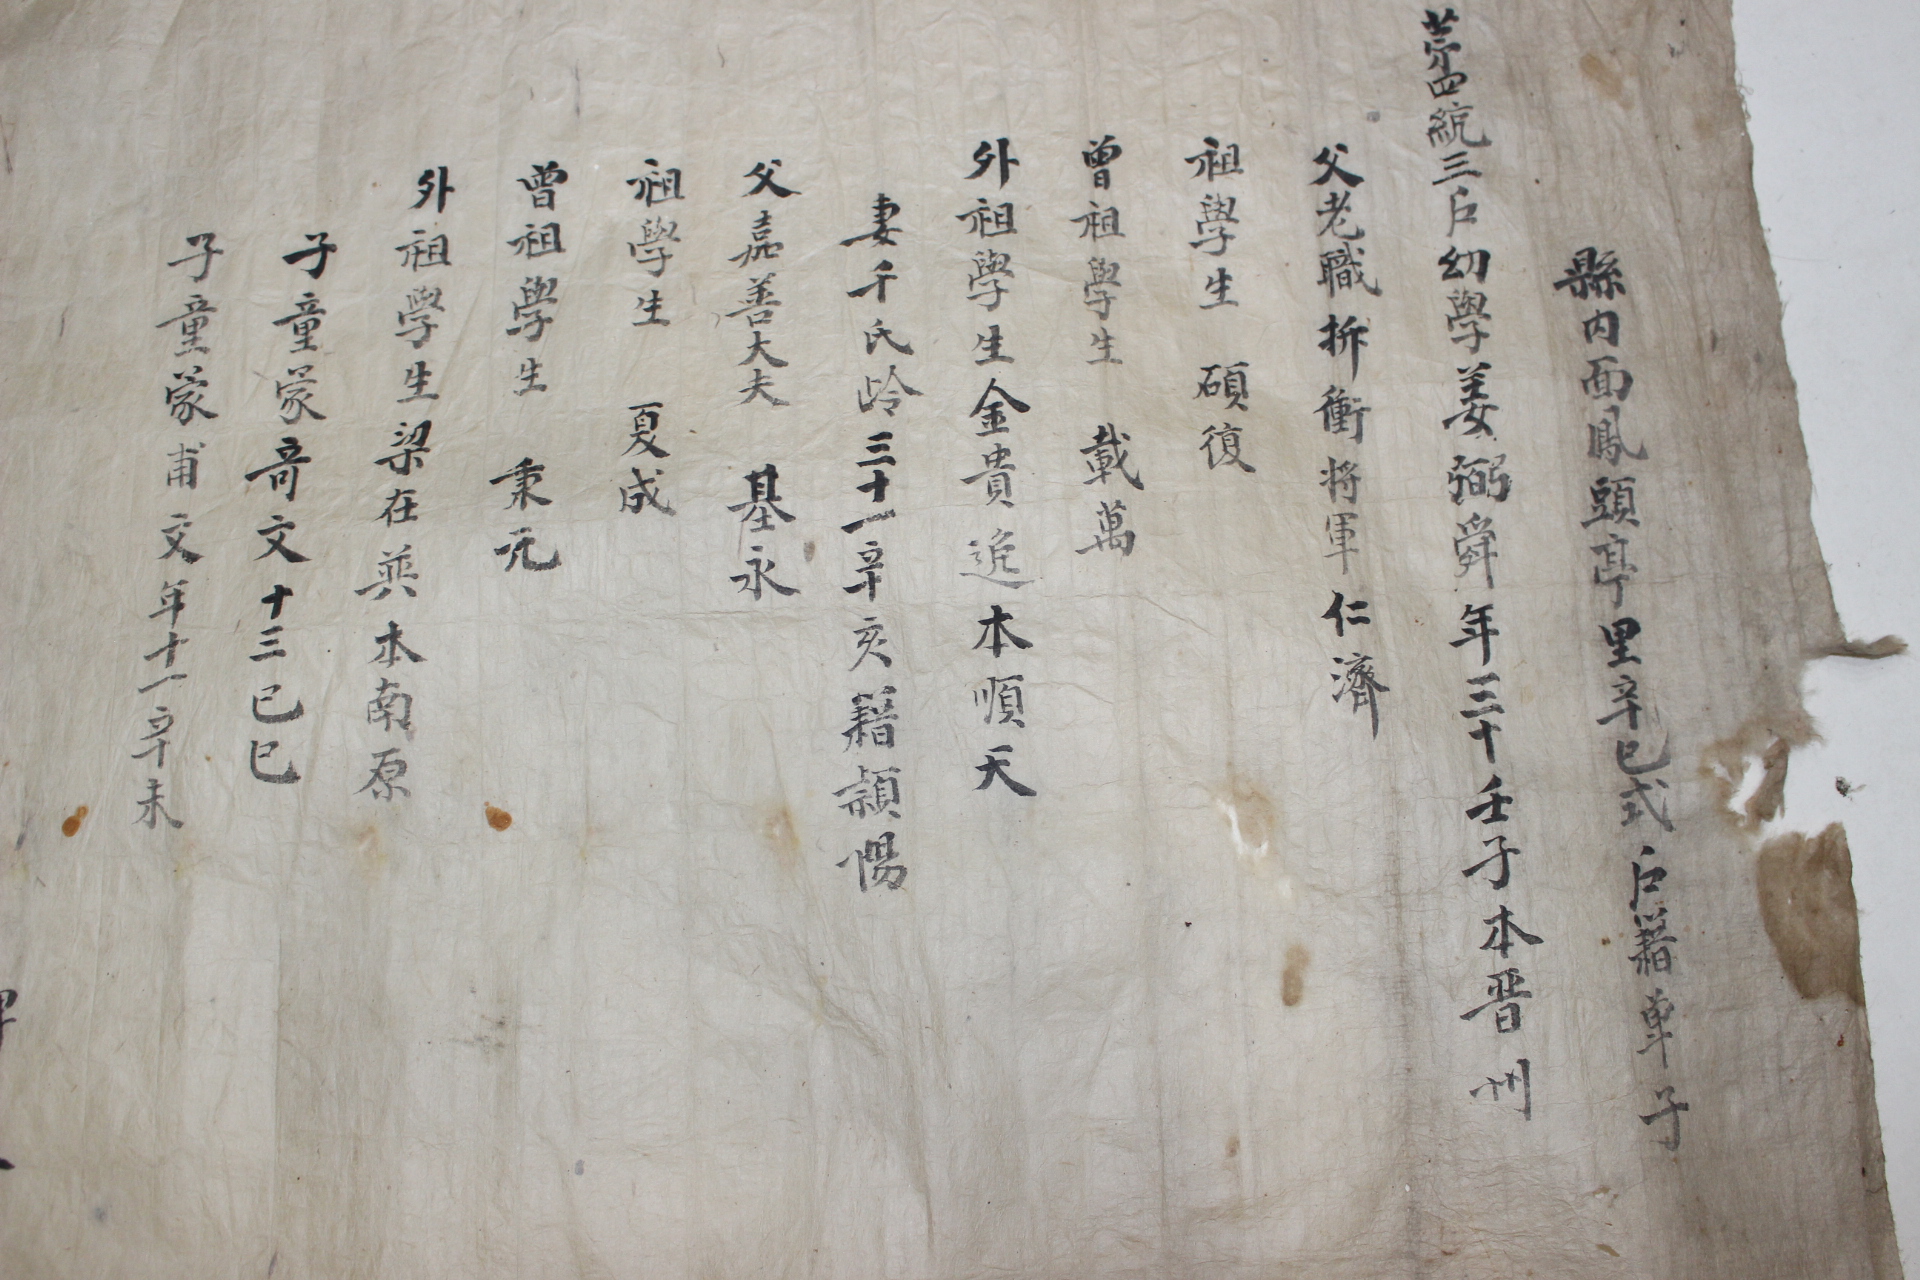 縣內面鳳頭亭里辛巳式戶籍單子
第四統三戶幼學姜弼舜年三十壬子本晋州
父老職折衝將軍仁濟
祖學生碩復
曾祖學生載萬
外祖學生金貴追本順天
妻千氏齡三十一辛亥籍潁陽
父嘉善大夫基永
祖學生夏成
曾祖學生秉元
外祖學生梁在英本南原
子童蒙奇文十三己巳
子童蒙甫文年十一辛未